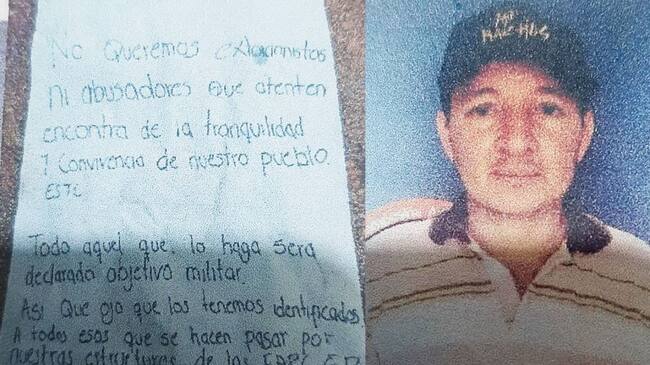 No Queremos extorsionistas
ni abusadores que atenten
encontra de la tranquilidad
y Convivencia de nuestro pueblo.
ESTE
Todo aquel que lo haga sera
declarado objetivo militar.
Asi Que ojo que los tenemos identificados
A todos esos que se hacen pasar por
nuestras estructuras de las FARC E.P